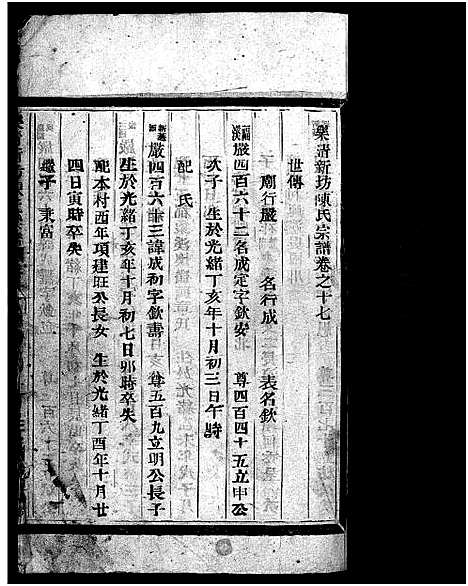 樂清新坊陳氏宗譜卷之十七
世傳
廟行嚴 名行成 表名欽
嚴四百六十二名成定字欽安 尊四百四十五立申公
次子 生於光緒丁亥年十月初三日午時
配 氏
嚴四百六十三諱成初字欽壽 尊五百九立明公長子
生於光緒丁亥年十月初七日卯時卒失
配本村西年項建旺公長女 生於光緒丁酉年十月廿
四日寅時卒失
繼子 秉富